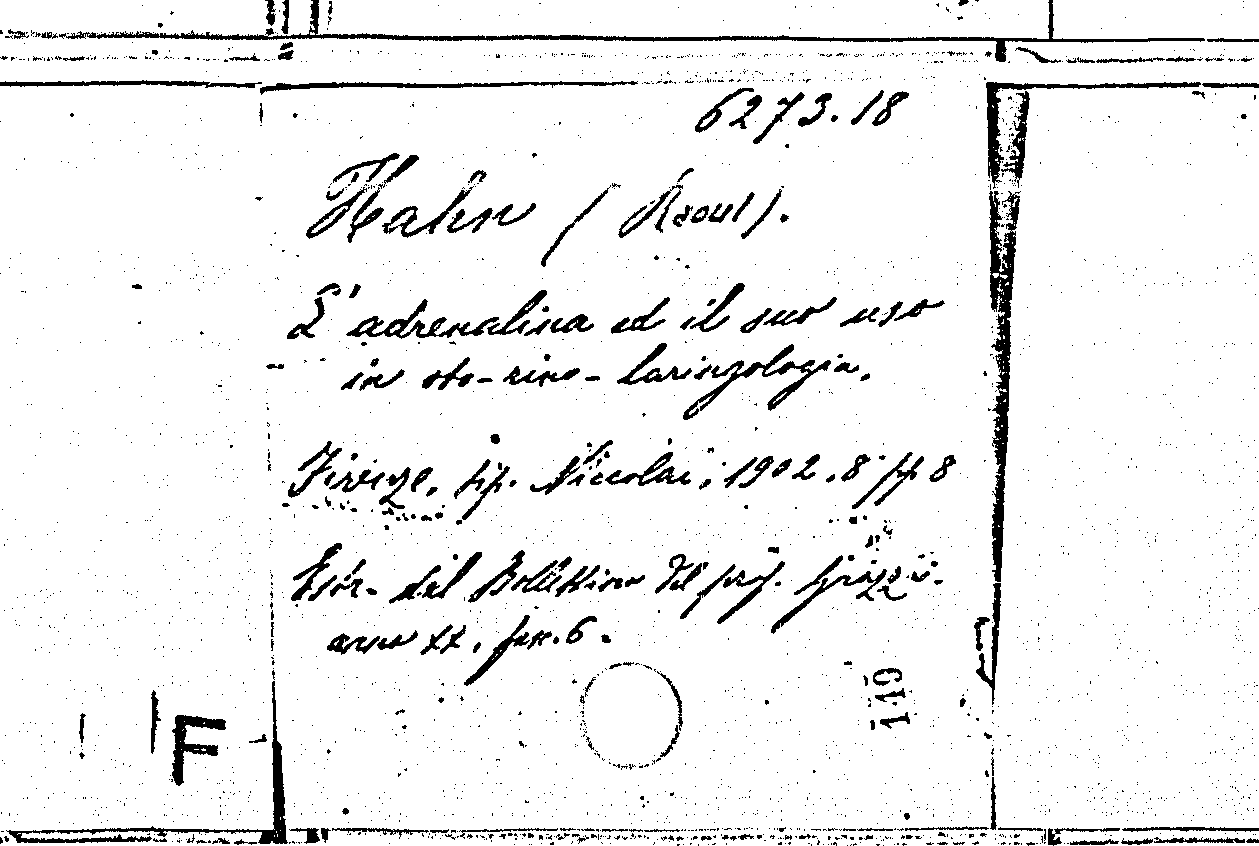 6273.18
Hahn (Raoul).
L'adrenalina ed il suo uso
in oto-rino-laringologia.
Firenze, tip. Niccolai, 1902. 8° pp. 8
Estr. del Bollettino del prof. Grazzi.
anno XX, fasc. 6.
119
F